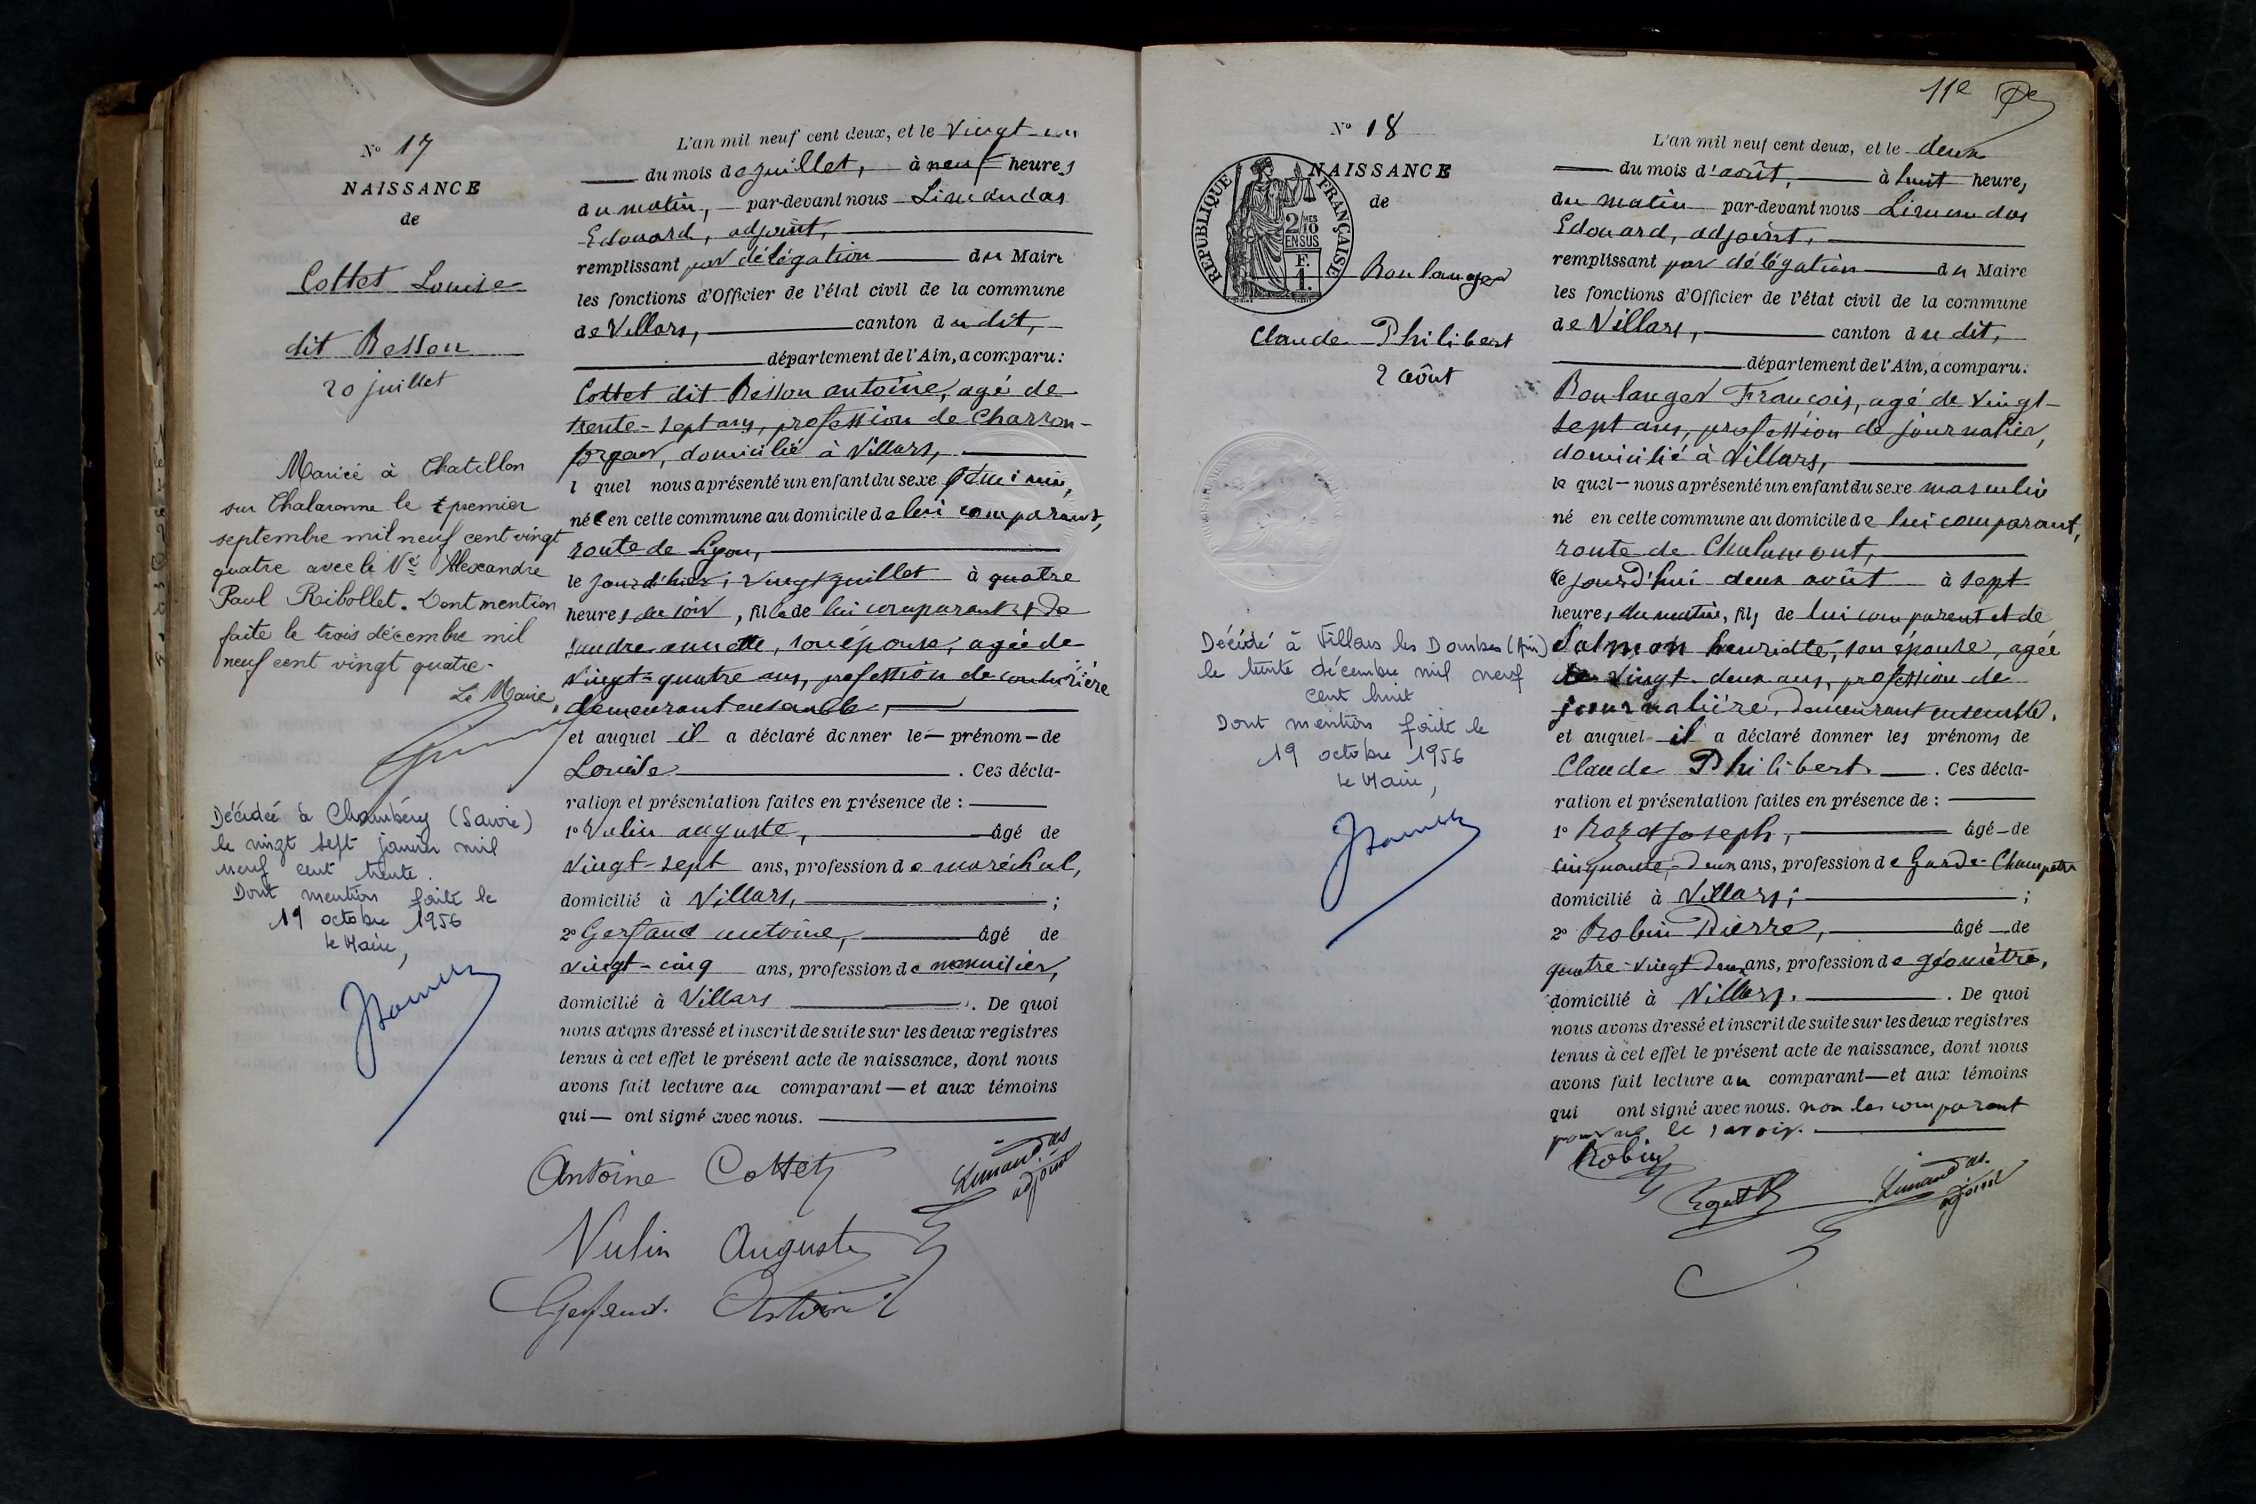 N° 17
NAISSANCE
de
Cottet Louise
dit Besson
20 juillet
Mariée à Chatillon
sur Chalaronne le premier
septembre mil neuf cent vingt
quatre avec le Vé Alexandre
Paul Ribollet. Dont mention
faite le trois décembre mil
neuf cent vingt quatre.
Le Maire,
Décédée à Chambéry (Savoie)
le vingt sept janvier mil
neuf cent trente.
Dont mention faite le
19 octobre 1956
Le Maire,
L'an mil neuf cent deux, et le vingt-un
du mois de juillet, à neuf heures
du matin, par-devant nous Limandas
Edouard, adjoint,
remplissant par délégation du Maire
les fonctions d'Officier de l'état civil de la commune
de Villars, canton du dit,
département de l'Ain, a comparu:
Cottet dit Besson antoine, agé de
trente-sept ans, profession de Charron-
forgeur, domicilié à Villars,
l quel nous a présenté un enfant du sexe féminin,
née en cette commune au domicile de lui comparant,
route de Lyon,
le jour d'hier, vingt juillet à quatre
heures du soir, fille de lui comparant et de
son épouse, agée de
vingt-quatre ans, profession de couturière
demeurant ensemble,
et auquel il a déclaré donner le prénom de
Louise. Ces décla-
ration et présentation faites en présence de :
1° Vulin auguste, âgé de
vingt-sept ans, profession de maréchal,
domicilié à Villars, ;
2° Gerfaud antoine, âgé de
vingt-cinq ans, profession de menuisier,
domicilié à Villars. De quoi
nous avons dressé et inscrit de suite sur les deux registres
tenus à cet effet le présent acte de naissance, dont nous
avons fait lecture au comparant — et aux témoins
qui — ont signé avec nous.
Antoine Cottet
Limandas
adjoint
Vulin Auguste
Gerfaud Antoine
11e
N° 18
NAISSANCE
de
RÉPUBLIQUE FRANÇAISE
2/10 MES
EN SUS
F.
1.
Boulanger
Claude Philibert
2 août
Décédé à Villars les Dombes (Ain)
le trente décembre mil neuf
cent huit
Dont mention faite le
19 octobre 1956
Le Maire,
L'an mil neuf cent deux, et le deux
du mois d'août, à huit heures
du matin par-devant nous Limandas
Edouard, adjoint,
remplissant par délégation du Maire
les fonctions d'Officier de l'état civil de la commune
de Villars, canton du dit,
département de l'Ain, a comparu:
Boulanger François, agé de vingt-
sept ans, profession de journalier,
domicilié à Villars,
le quel — nous a présenté un enfant du sexe masculin
né en cette commune au domicile de lui comparant,
route de Chalamont,
le jourd'hui deux août à sept
heures du matin, fils de lui comparant et de
Salmon henriette, son épouse, agée
de vingt-deux ans, profession de
journalière, demeurant ensemble.
et auquel il a déclaré donner les prénoms de
Claude Philibert. Ces décla-
ration et présentation faites en présence de :
1° Rozet Joseph, âgé de
cinquante-deux ans, profession de Garde-Champetre
domicilié à Villars; ;
2° Robin Pierre, âgé de
quatre-vingt deux ans, profession de géomètre,
domicilié à Villars. De quoi
nous avons dressé et inscrit de suite sur les deux registres
tenus à cet effet le présent acte de naissance, dont nous
avons fait lecture au comparant — et aux témoins
qui ont signé avec nous. non les comparant
pour ne le savoir.
Robin
Limandas
adjoint